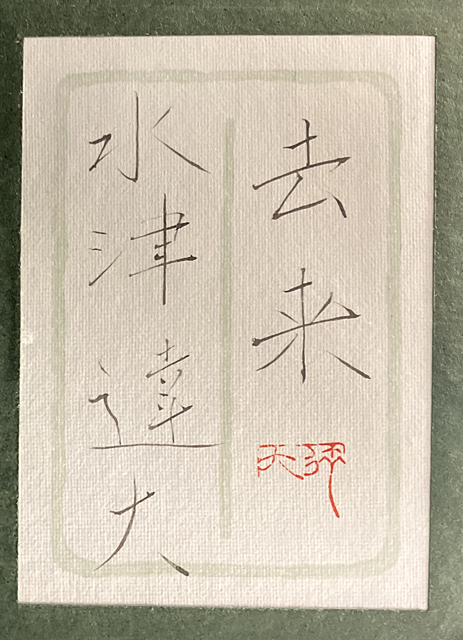 去来
水津達大